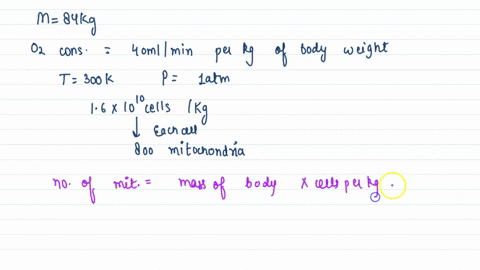 M = 84Kg
O2 cons. = 40ml/min per kg of body weight
T = 300K P = 1atm
1.6 x 10^10 cells /Kg
Each cell
800 mitochondria
no. of mit. = mass of body x cells per kg .